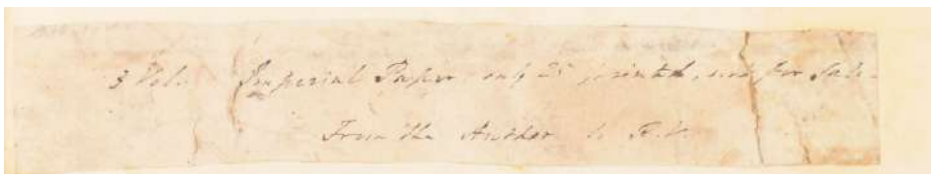 3 Vol. Imperial Paper only 25 printed, not for Sale.
From the Author to R.W.